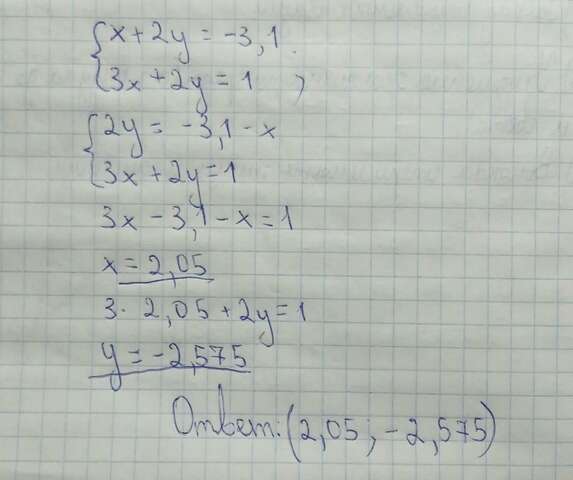 x + 2y = -3,1.
3x + 2y = 1 ,
2y = -3,1 - x
3x + 2y = 1
3x - 3,1 - x = 1
x = 2,05
3. 2,05 + 2y = 1
y = -2,575
Ответ: (2,05; -2,575)